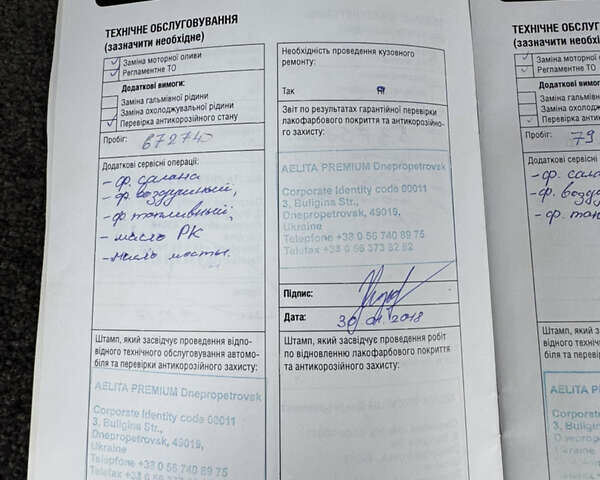 ТЕХНІЧНЕ ОБСЛУГОВУВАННЯ
(зазначити необхідне)
Заміна моторної оливи
Регламентне ТО
Додаткові вимоги:
Заміна гальмівної рідини
Заміна охолоджувальної рідини
Перевірка антикорозійного стану
Пробіг:
Додаткові сервісні операції:
- ф. салона
- ф. воздушный,
- ф топливный;
- масло РК
- масло мосты.
Штамп, який засвідчує проведення відпо-
відного технічного обслуговування автомо-
біля та перевірки антикорозійного захисту:
AELITA PREMIUM Dnepropetrovsk
Corporate Identity code 00011
3, Buligina Str.,
Dnepropetrovsk, 49019,
Ukraine
Telephone +38 0 56 740 89 75
Необхідність проведення кузовного
ремонту:
Так
Звіт по результатах гарантійної перевірки
лакофарбового покриття та антикорозійно-
го захисту:
AELITA PREMIUM Dnepropetrovsk
Corporate Identity code 00011
3, Buligina Str.,
Dnepropetrovsk, 49019,
Ukraine
Telephone +38 0 56 740 89 75
Підпис:
Дата:
2018
Штамп, який засвідчує проведення робіт
по відновленню лакофарбового покриття
та антикорозійного захисту:
ТЕХНІЧНЕ ОБСЛУГ
(зазначити необхі
Заміна моторної оливи
Регламентне ТО
Додаткові вимог
Заміна гальмівної
Заміна охолоджу
Перевірка антик
Пробіг: 79
Додаткові сервісні о
- ф. сал
- ф. возду
- ф. топ
Штамп, який засві
відного технічного
біля та перевірки а
AELITA PREM
Corporate
3, Bulig
Dneprop
Ukraine